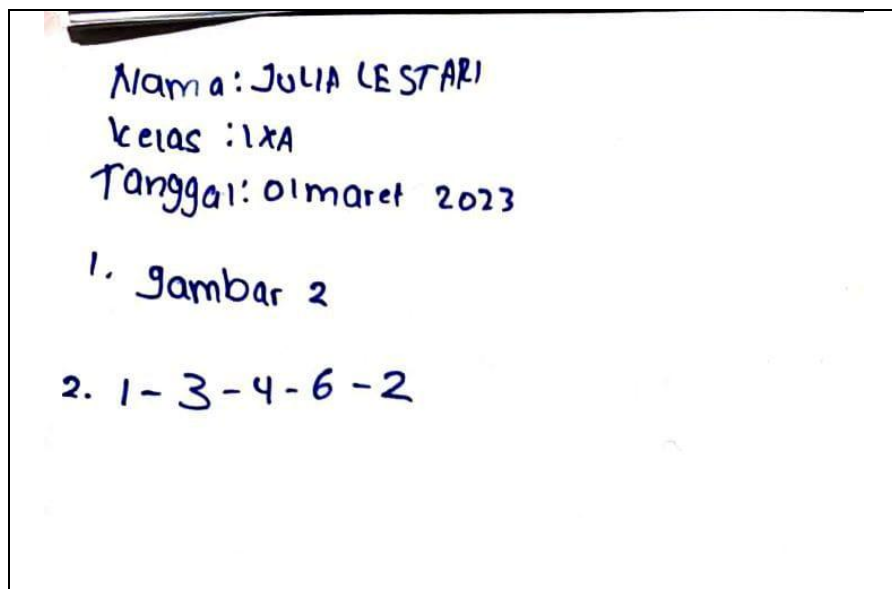 Nama: JULIA LESTARI
Kelas : IXA
Tanggal: 01 maret 2023
1. gambar 2
2. 1 - 3 - 4 - 6 - 2